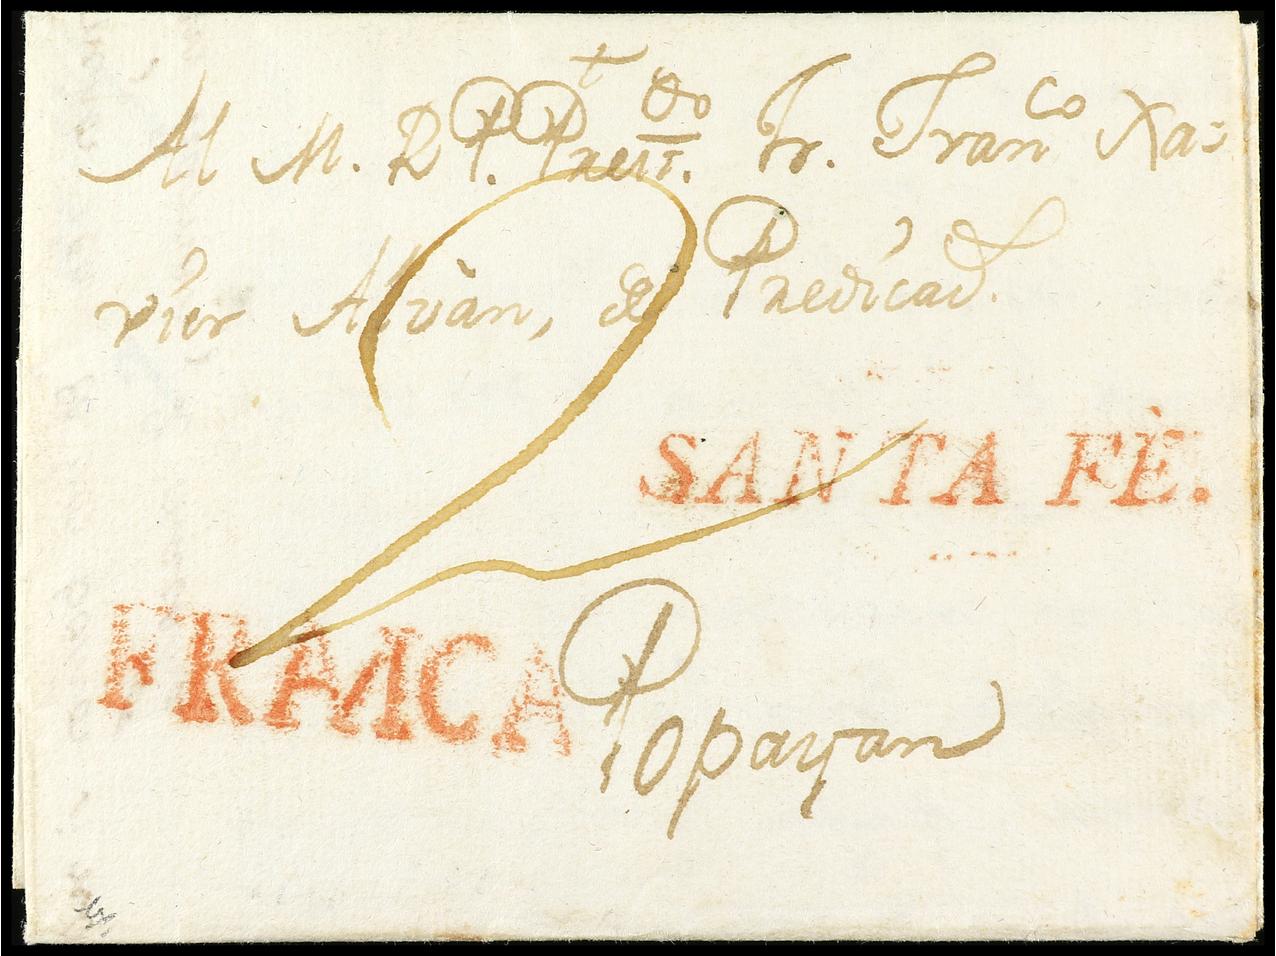 Al M. R. P. Pres.t do Fr. Franco Xa=
vier Alvàn, de Predicad.s
SANTA FÈ.
2
FRANCA
Popayan